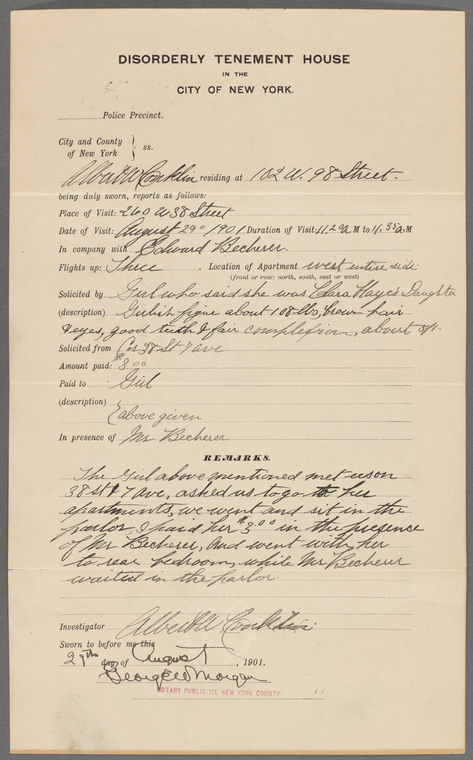 DISORDERLY TENEMENT HOUSE
IN THE
CITY OF NEW YORK.
Police Precinct.
City and County
of New York } ss.
Albert W Conklin residing at 102 W. 98 Street.
being duly sworn, reports as follows:
Place of Visit: 260 W 38 Street
Date of Visit: August 29" 1901 Duration of Visit: 11.20 A. M to 11.35 A. M
In company with Edward Becherer.
Flights up: Three . Location of Apartment west entire side
(front or rear: north, south, east or west)
Solicited by Girl who said she was Clara Hayes Daughter
(description) Girlish figure about 108 lbs, brown hair
& eyes, good teeth & fair complexion, about
Solicited from Cor 38 St 7 ave
Amount paid: 3.00
Paid to Girl
(description)
above given
In presence of Mr Becherer
REMARKS.
The Girl above mentioned met us on
38 St & 7 Ave, asked us to go to her
apartments, we went and sit in the
parlor, I paid her $3.00 in the presence
of Mr Becherer, and went with her
to rear bedroom, while Mr Becherer
waited in the parlor
Investigator Albert W Conklin
Sworn to before me this
29th day of August , 1901.
George W Morgan
NOTARY PUBLIC 177, NEW YORK COUNTY.